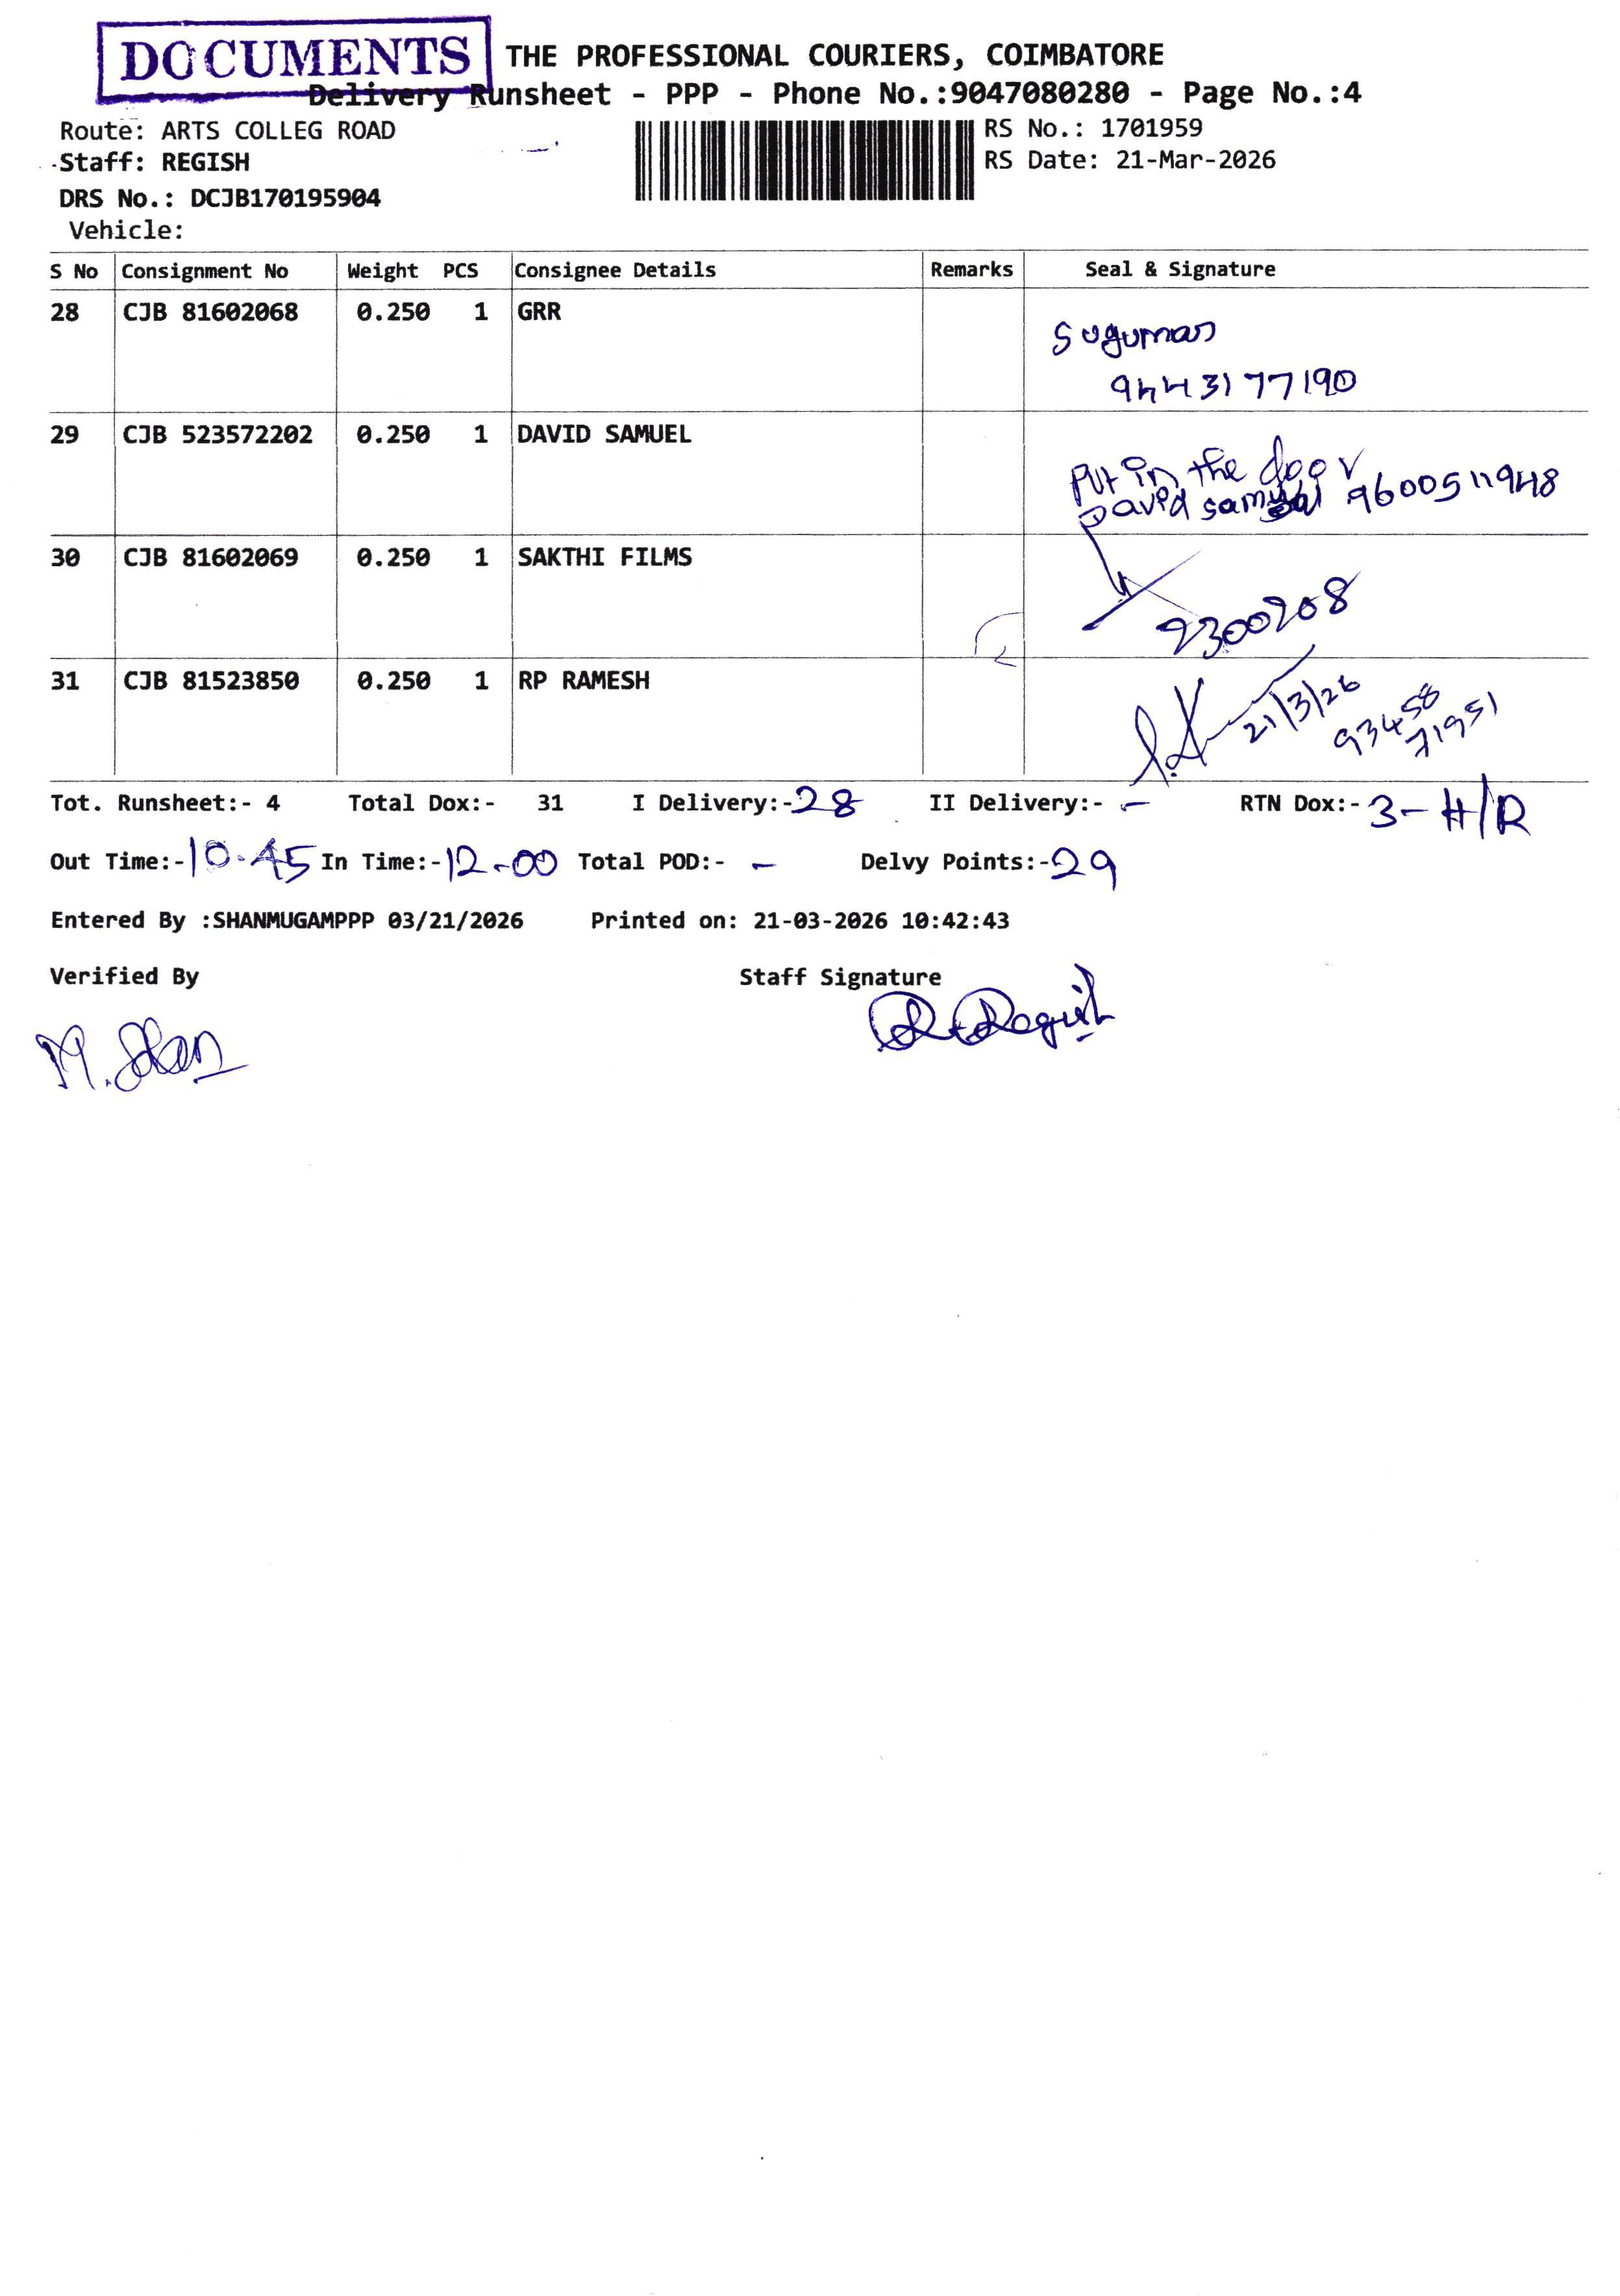 DOCUMENTS
THE PROFESSIONAL COURIERS, COIMBATORE
Delivery Runsheet - PPP - Phone No.:9047080280 - Page No.:4
Route: ARTS COLLEG ROAD
RS No.: 1701959
Staff: REGISH
RS Date: 21-Mar-2026
DRS No.: DCJB170195904
Vehicle:
S No Consignment No Weight PCS Consignee Details Remarks Seal & Signature
28 CJB 81602068 0.250 1 GRR
Sugumar
9443177190
29 CJB 523572202 0.250 1 DAVID SAMUEL
Put in the door
David samuel 9600511948
30 CJB 81602069 0.250 1 SAKTHI FILMS
2300208
31 CJB 81523850 0.250 1 RP RAMESH
21/3/26
93458
71951
Tot. Runsheet:- 4 Total Dox:- 31 I Delivery:-28 II Delivery:- - RTN Dox:-3-H/R
Out Time:-10-45 In Time:-12-00 Total POD:- - Delvy Points:-29
Entered By :SHANMUGAMPPP 03/21/2026 Printed on: 21-03-2026 10:42:43
Verified By Staff Signature